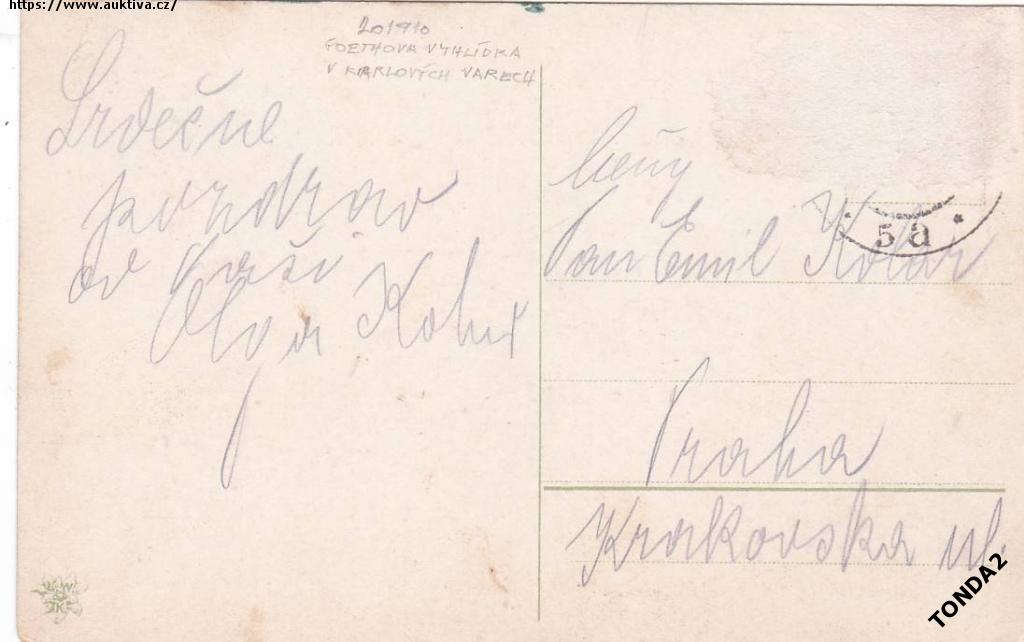 https://www.auktiva.cz/
201910
GOETHOVA VYHLÍDKA
V KARLOVÝCH VARECH
Srdečne
pozdrav
od Vaši
Olga
Pan Emil Kolář
5 a
Praha
Krakovska ul.
TONDA2